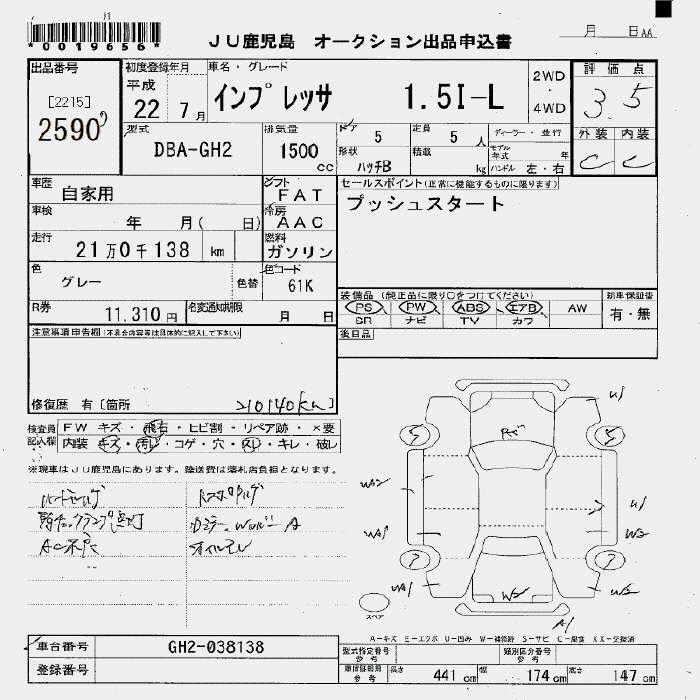 *0019656*
JU鹿児島 オークション出品申込書
月 日 AA
出品番号 初度登録年月 車名・グレード 2WD・4WD 評価点
[2215] 2590
平成 22 7月 インプレッサ 1.5I-L 3.5
型式 DBA-GH2 排気量 1500 cc
ドア 5 定員 5 人 ディーラー・並行 外装 内装
形状 ハッチB 積載 kg モデル年式 年 ハンドル 左・右 C C
車歴 自家用 シフト FAT セールスポイント(正常に機能するものに限ります)
車検 年 月( 日) 冷房 AAC プッシュスタート
走行 21万0千138 km 燃料 ガソリン
色 グレー 色替 色コード 61K
装備品(純正品に限り○をつけてください) 新車保証書
R券 11,310円 名変通知期限 月 日
PS PW ABS エアB AW 有・無
SR ナビ TV カワ
注意事項申告欄(不具合内容等は具体的に記入して下さい) 後日品
修復歴 有〔箇所 210140km〕
検査員記入欄 FW キズ・飛石・ヒビ割・リペア跡・×要
内装 キズ・汚れ・コゲ・穴・スレ・キレ・破レ
※現車はJU鹿児島にあります。陸送費は落札店負担となります。
AC不良
U1
W2
A1
スペア
A-キズ E-エクボ U-凹み W-補修跡 S-サビ C-腐食 XX-交換済
車台番号 GH2-038138
登録番号
型式指定番号 参考 類別区分番号 参考
車検証明用 参考 長さ 441cm 幅 174cm 高さ 147cm